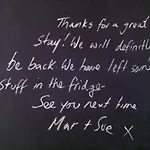 Thanks for a great
Stay! We will definitly
be back We have left some
Stuff in the fridge
See you next time
Mar + Sue X